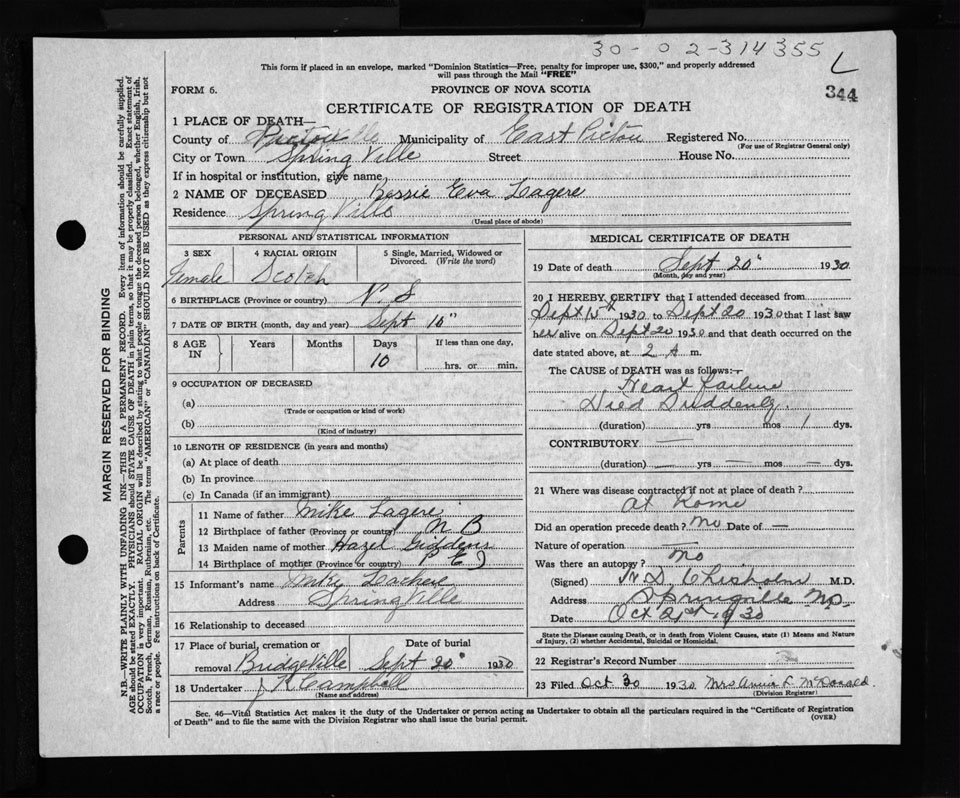 30-02-314355
L
This form if placed in an envelope, marked "Dominion Statistics—Free, penalty for improper use, $300," and properly addressed
will pass through the Mail "FREE"
344
FORM 6.
PROVINCE OF NOVA SCOTIA
CERTIFICATE OF REGISTRATION OF DEATH
1 PLACE OF DEATH—
County of Pictou Municipality of East Pictou Registered No.
(For use of Registrar General only)
City or Town Spring Ville Street House No.
If in hospital or institution, give name
2 NAME OF DECEASED Bessie Eva Lagere
Residence Spring Ville
(Usual place of abode)
PERSONAL AND STATISTICAL INFORMATION
3 SEX
Female
4 RACIAL ORIGIN
Scotch
5 Single, Married, Widowed or
Divorced. (Write the word)
6 BIRTHPLACE (Province or country) N. S
7 DATE OF BIRTH (month, day and year) Sept 10"
8 AGE
IN
Years Months Days
10
If less than one day,
hrs. or min.
9 OCCUPATION OF DECEASED
(a)
(Trade or occupation or kind of work)
(b)
(Kind of industry)
10 LENGTH OF RESIDENCE (in years and months)
(a) At place of death
(b) In province
(c) In Canada (if an immigrant)
Parents
11 Name of father Mike Lagere
12 Birthplace of father (Province or country) N B
13 Maiden name of mother Hazel Giddens
14 Birthplace of mother (Province or country) P E I
15 Informant's name Mike
Address SpringVille
16 Relationship to deceased
17 Place of burial, cremation or
removal Bridgeville
Date of burial
Sept 20" 1930
18 Undertaker J K Campbell
(Name and address)
MEDICAL CERTIFICATE OF DEATH
19 Date of death Sept 20" 1930
(Month, day and year)
20 I HEREBY CERTIFY that I attended deceased from
Sept 15th 1930 to Sept 20 1930 that I last saw
her alive on Sept 20 1930 and that death occurred on the
date stated above, at 2 A m.
The CAUSE of DEATH was as follows:—
Heart Failure
Died Suddenly.
(duration) yrs mos 1 dys.
CONTRIBUTORY —
(duration) — yrs — mos — dys.
21 Where was disease contracted if not at place of death?
At Home
Did an operation precede death? No Date of —
Nature of operation —
Was there an autopsy? No
(Signed) Chisholm M.D.
Address Springville NS
Date Oct 2 1930
State the Disease causing Death, or in death from Violent Causes, state (1) Means and Nature
of Injury, (2) whether Accidental, Suicidal or Homicidal.
22 Registrar's Record Number
23 Filed Oct 30 1930 Mrs Annie F McDonald
(Division Registrar)
Sec. 46—Vital Statistics Act makes it the duty of the Undertaker or person acting as Undertaker to obtain all the particulars required in the "Certificate of Registration
of Death" and to file the same with the Division Registrar who shall issue the burial permit.
(OVER)
MARGIN RESERVED FOR BINDING
N.B.—WRITE PLAINLY WITH UNFADING INK—THIS IS A PERMANENT RECORD. Every item of information should be carefully supplied.
AGE should be stated EXACTLY. PHYSICIANS should STATE CAUSE OF DEATH in plain terms, so that it may be properly classified. Exact statement of
OCCUPATION is very important. RACIAL ORIGIN will be described by stating to what people or tongue the deceased person belonged, whether English, Irish,
Scotch, French, German, Russian, Ruthenian, etc. The terms "AMERICAN" or "CANADIAN" SHOULD NOT BE USED as they express citizenship but not
a race or people. Fee instructions on back of Certificate.